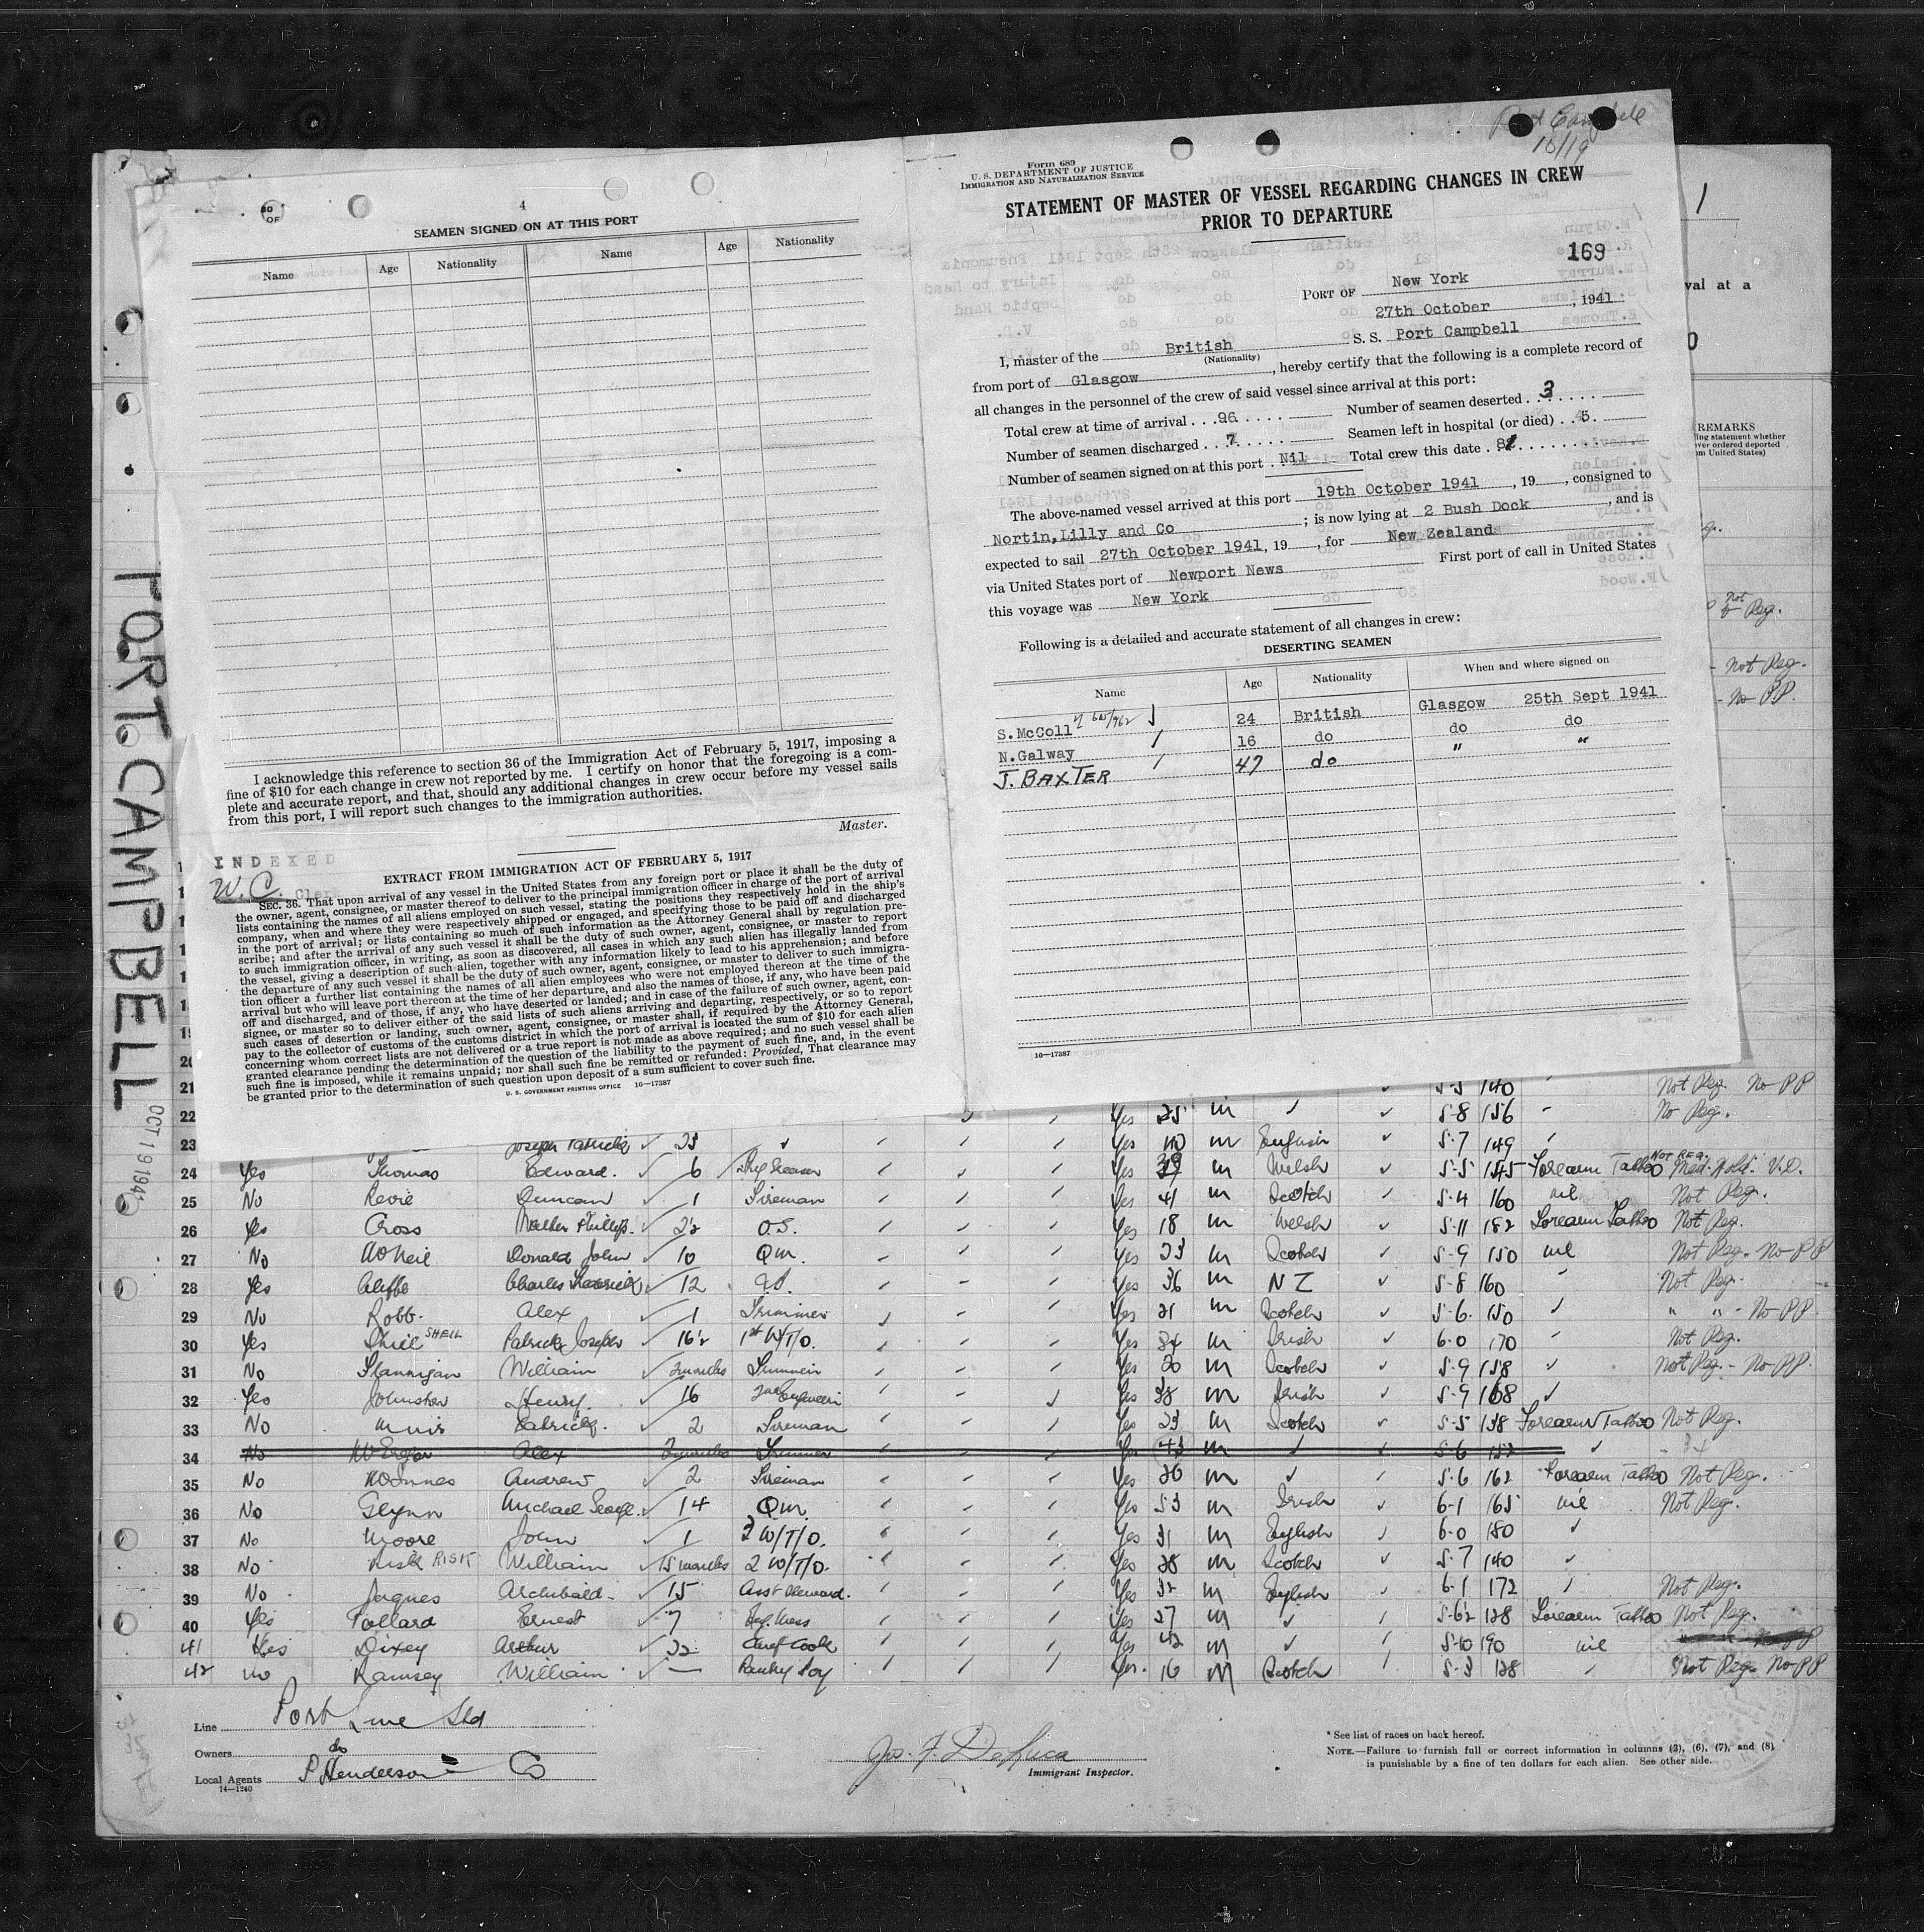 4
SEAMEN SIGNED ON AT THIS PORT
Name Age Nationality Name Age Nationality
I acknowledge this reference to section 36 of the Immigration Act of February 5, 1917, imposing a
fine of $10 for each change in crew not reported by me. I certify on honor that the foregoing is a com-
plete and accurate report, and that, should any additional changes in crew occur before my vessel sails
from this port, I will report such changes to the immigration authorities.
Master.
INDEXED
W.C. Clerk
EXTRACT FROM IMMIGRATION ACT OF FEBRUARY 5, 1917
SEC. 36. That upon arrival of any vessel in the United States from any foreign port or place it shall be the duty of
the owner, agent, consignee, or master thereof to deliver to the principal immigration officer in charge of the port of arrival
lists containing the names of all aliens employed on such vessel, stating the positions they respectively hold in the ship's
company, when and where they were respectively shipped or engaged, and specifying those to be paid off and discharged
in the port of arrival; or lists containing so much of such information as the Attorney General shall by regulation pre-
scribe; and after the arrival of any such vessel it shall be the duty of such owner, agent, consignee, or master to report
to such immigration officer, in writing, as soon as discovered, all cases in which any such alien has illegally landed from
the vessel, giving a description of such alien, together with any information likely to lead to his apprehension; and before
the departure of any such vessel it shall be the duty of such owner, agent, consignee, or master to deliver to such immigra-
tion officer a further list containing the names of all alien employees who were not employed thereon at the time of the
arrival but who will leave port thereon at the time of her departure, and also the names of those, if any, who have been paid
off and discharged, and of those, if any, who have deserted or landed; and in case of the failure of such owner, agent, con-
signee, or master so to deliver either of the said lists of such aliens arriving and departing, respectively, or so to report
such cases of desertion or landing, such owner, agent, consignee, or master shall, if required by the Attorney General,
pay to the collector of customs of the customs district in which the port of arrival is located the sum of $10 for each alien
concerning whom correct lists are not delivered or a true report is not made as above required; and no such vessel shall be
granted clearance pending the determination of the question of the liability to the payment of such fine, and, in the event
such fine is imposed, while it remains unpaid; nor shall such fine be remitted or refunded: Provided, That clearance may
be granted prior to the determination of such question upon deposit of a sum sufficient to cover such fine.
U. S. GOVERNMENT PRINTING OFFICE 16—17387
Port Campbell
10/19
Form 689
U. S. DEPARTMENT OF JUSTICE
IMMIGRATION AND NATURALIZATION SERVICE
STATEMENT OF MASTER OF VESSEL REGARDING CHANGES IN CREW
PRIOR TO DEPARTURE
169
PORT OF New York
27th October, 1941
I, master of the British S. S. Port Campbell
(Nationality)
from port of Glasgow, hereby certify that the following is a complete record of
all changes in the personnel of the crew of said vessel since arrival at this port:
Total crew at time of arrival 96 Number of seamen deserted 3
Number of seamen discharged 7 Seamen left in hospital (or died) 5
Number of seamen signed on at this port Nil Total crew this date 81
The above-named vessel arrived at this port 19th October 1941, 19, consigned to
Nortin,Lilly and Co; is now lying at 2 Bush Dock, and is
expected to sail 27th October 1941, 19, for New Zealand
via United States port of Newport News First port of call in United States
this voyage was New York
Following is a detailed and accurate statement of all changes in crew:
DESERTING SEAMEN
Name Age Nationality When and where signed on
S.McColl 24 British Glasgow 25th Sept 1941
N.Galway 16 do do do
J. BAXTER 47 do " "
16—17387
1
val at a
REMARKS
ing statement whether
ver ordered deported
om United States)
not Reg.
- Not Reg.
- No PP.
PORT CAMPBELL
OCT 19 194
21 5-5 140 Not Reg. No PP
22 Yes 25 m 5-8 156 No Reg.
23 Joseph Patrick 23 Yes 40 m English 5-7 149
24 Yes Thomas Edward. 6 Greaser Yes 39 m Welsh 5-5 145 Forearm Tattoo NOT REG. Med. Hold. V.D.
25 No Revie Duncan 1 Fireman Yes 41 m Scotch 5-4 160 nil Not Reg.
26 Yes Cross Walter Phillip. 2½ O.S. Yes 18 m Welsh 5-11 182 Forearm Tattoo Not Reg.
27 No McNeil Donald John 10 Qm. Yes 23 m Scotch 5-9 150 nil Not Reg. No PP
28 Yes Cliffe Charles Frederick 12 Yes 36 m NZ 5-8 160 Not Reg.
29 No Robb. Alex 1 Trimmer Yes 21 m Scotch 5-6 150 " " - No PP.
30 Yes Shiel SHEIL Patrick Joseph 16½ 1st W/T/O. Yes 34 m Irish 6-0 170 Not Reg.
31 No Flannigan William 3 months Trimmer Yes 20 m Scotch 5-9 158 Not Reg. - No PP.
32 Yes Johnston Henry. 16 2nd Engineer Yes 38 m Irish 5-9 168
33 No Muir Patrick. 2 Fireman Yes 23 m Scotch 5-5 138 Forearm Tattoo Not Reg.
34 No McGregor Alex 3 months Trimmer Yes 43 m 5-6 152
35 No McInnes Andrew 2 Fireman Yes 20 m 5-6 162 Forearm Tattoo Not Reg.
36 No Glynn Michael George. 14 Qm. Yes 53 m Irish 6-1 165 nil Not Reg.
37 No Moore John 1 3 W/T/O. Yes 31 m English 6-0 180
38 No Risk RISK William 15 months 2 W/T/O. Yes 28 m Scotch 5-7 140
39 No Jaques Archibald 15 Asst Steward. Yes 32 m English 6-1 172 Not Reg.
40 Yes Pollard Ernest 7 Eng. Mess Yes 27 m 5-6½ 128 Forearm Tattoo Not Reg.
41 Yes Dixey Arthur 22 Chief Cook Yes 42 m 5-10 190 nil
42 No Ramsey William — Pantry Boy Yes. 16 M Scotch 5-3 128 Not Reg. No PP
Line Port Line Ltd
Owners do
Local Agents P Henderson & Co
14—1240
Jos. F. DeLuca
Immigrant Inspector.
* See list of races on back hereof.
NOTE.—Failure to furnish full or correct information in columns (3), (6), (7), and (8)
is punishable by a fine of ten dollars for each alien. See other side.